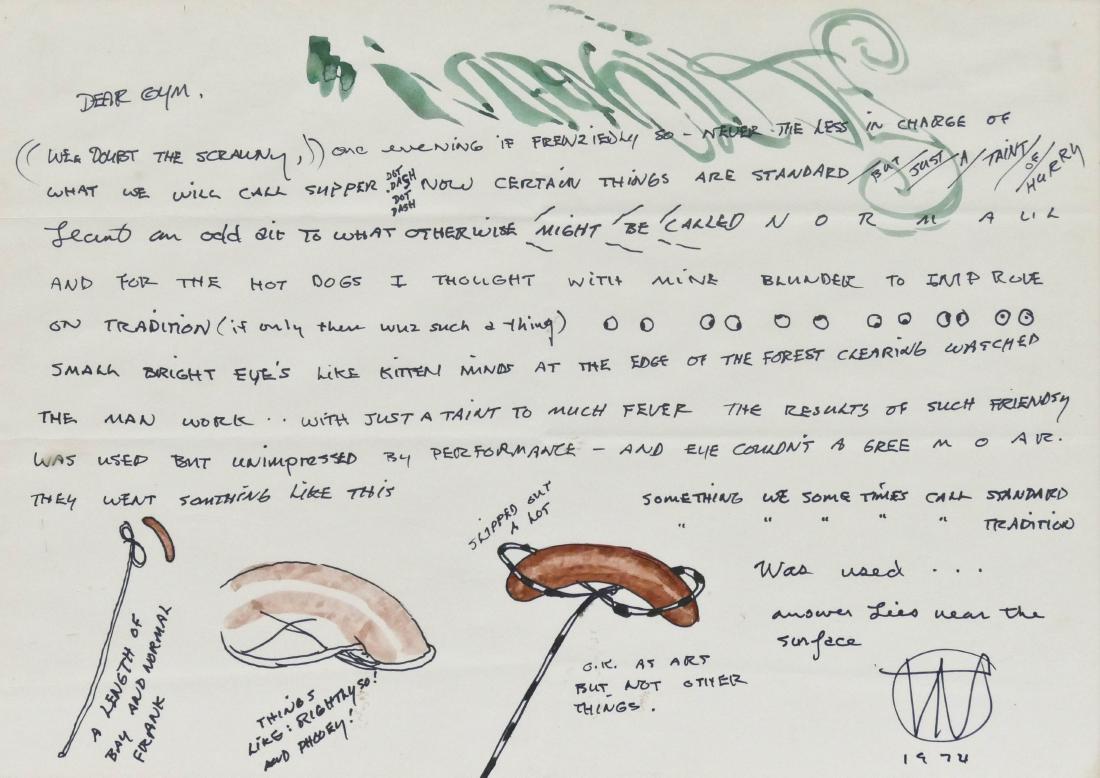 DEAR GYM.
((WEE DOUBT THE SCRAWNY,)) one evening if FRENZIEDLY SO - NEVER THE LESS IN CHARGE OF
WHAT WE WILL CALL SUPPER DOT DASH DOT DASH NOW CERTAIN THINGS ARE STANDARD / BUT / JUST / A / TAINT / OF / HURRY
leant an odd air TO WHAT OTHERWISE MIGHT BE CALLED N O R M A L
AND FOR THE HOT DOGS I THOUGHT WITH MINE BLUNDER TO IMPROVE
ON TRADITION (if only there wuz such a thing)
SMALL BRIGHT EYE'S LIKE KITTEN MINDS AT THE EDGE OF THE FOREST CLEARING WATCHED
THE MAN WORK .. WITH JUST A TAINT TO MUCH FEVER THE RESULTS OF SUCH FRIENDSY
WAS USED BUT UNIMPRESSED BY PERFORMANCE - AND EYE COULDN'T A GREE M O A R.
THEY WENT SOMTHING LIKE THIS
SOMETHING WE SOME TIMES CALL STANDARD
" " " " " TRADITION
A LENGTH OF
BAY AND NORMAL
FRANK
THINGS
LIKE: RIGHTLY SO!
AND PHOOEY!
SLIPPED OUT
A LOT
O.K. AS ART
BUT NOT OTHER
THINGS.
Was used ...
answer lies near the
surface
1974